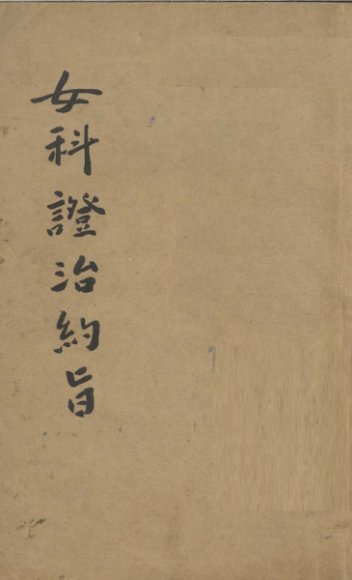 女科證治約旨